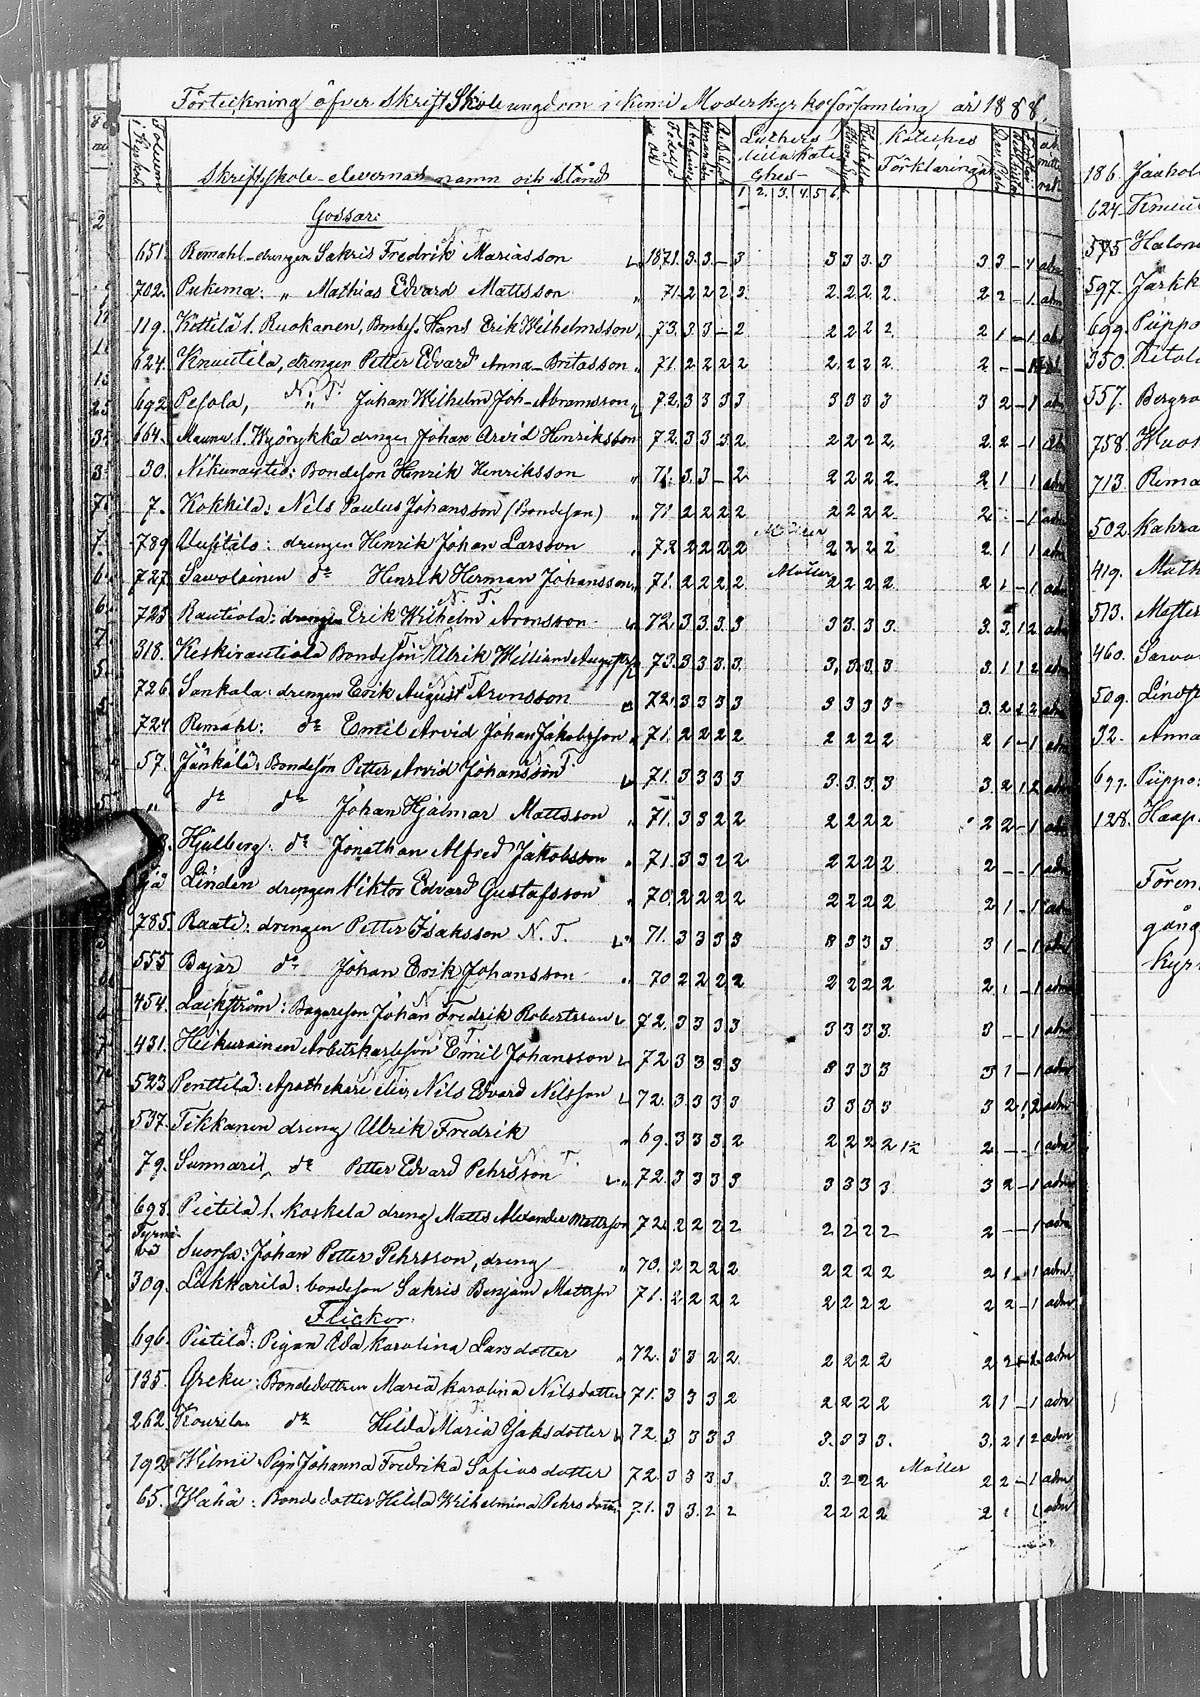 Förteckning öfver Skriftskoleungdom i Kemi Moderkyrkoförsamling år 1888.
Skriftskole-elevernas namn och stånd
Luthers lilla Kateches
Kateches Förklaringar
1. 2. 3. 4. 5. 6.
Gossar:
651. Remahl drengen Sakris Fredrik Mariasson 1871. 3. 3. – 3 3 3 3. 3 3 3 – 1 adm
702. Pukema: „ Mathias Edvard Mattsson „ 71. 2 2 2 3. 2. 2 2 2. 2 2 – 1 adm
119. Kettilä l. Ruokanen, Hans Erik Wilhelmsson „ 73. 3 3 – 2 2 2 2 2. 2 1 – 1 adm
624. Knuutila, drengen Petter Edvard Anna-Britasson „ 71. 2 2 2 2 2. 2 2 2. 2 – –
692 Pesola, N. T. „ Johan Wilhelm Joh-Abramsson „ 72. 3 3 3 3 3 3 3 3 3 2 – 1 adm
164. drengen Johan Arvid Henriksson 72. 3 3 3 2 2 2 2 2. 2 2 – 1 adm
30. Bondeson Henrik Henriksson „ 71. 3. 3 – 2 2 2 2 2. 2 1 1 adm
7. Kokkila: Nils Paulus Johansson (Bondeson) „ 71 2 2 2 2 2 2 2 2. 2 – 1 adm
789. drengen Henrik Johan Larsson „ 72 2 2 2 2 2 2 2 2 2 1 1 adm
727. Sawolainen do Henrik Herman Johansson „ 71. 2 2 2 2 Möller 2 2 2 2 2 1 – 1 adm
725 Rautiola: drengen Erik Wilhelm N. T. Aronsson 72. 3. 3. 3. 3 3 3. 3 3. 3. 3. 1 2 adm
318. Keskirautiola Bondeson Ulrik William 73. 3 3 3 3. 3. 3. 3 3 3. 1 1 2 adm
726. Sankala: drengen Erik August Aronsson 72. 3 3 3 3 3 3 3 3 3. 2 1 2 adm
724. Remahl: do Emil Arvid Johan Jakobsson „ 71. 2 2 2 2 2 2 2 2 2 1 – 1 adm
57. Jänkälä: Bondeson Petter Arvid Johansson 71. 3 3 3 3 3. 3. 3. 3 3. 2 1 2 adm
„ do do Johan Hjalmar Mattsson „ 71. 3 3 2 2 2 2 2 2 2 2 – 1 adm
Hjulberg: do Jonathan Alfred Jakobsson „ 71. 3 3 2 2 2 2 2 2 2 – – 1 adm
Linden drengen Viktor Edvard Gustafsson „ 70. 2 2 2 2 2 2 2 2 2 1 – 1 adm
785. Raate: drengen Petter Isaksson N. T. 71. 3 3 3 3 3 3 3 3 3 1 – 1 adm
555 Bajar do Johan Erik Johansson „ 70 2 2 2 2 2 2 2 2 2 1 – 1 adm
454. Bagareson Johan Fredrik Robertsson 72. 3 3 3 3 3 3 3 3. 3 – – 1 adm
431. Heikurainen Arbetskarlsson Emil Johansson 72 3 3 3 3 3 3 3 3 1 – 1 adm
523 Penttilä: Apothekare elev, Nils Edvard Nilsson 72. 3 3 3 3 3 3 3 3 3 2 1 2 adm
537. Tikkanen dreng Ulrik Fredrik „ 69. 3 3 3. 2 2 2 2 2 1½ 2 – – 1 adm
79. Sunnari, do Petter Edvard Pehrsson T. 72. 3 3 3 3 3 3 3 3 3 2 – 1 adm
698. Pietilä l. Koskela dreng Matts Alexander Mattsson 72. 2 2 2 2 2 2 2 2 2 – – 1 adm
Tyrnävä Suorsa: Johan Petter Pehrsson, dreng „ 70. 2 2 2 2 2 2 2 2 2 1 1 adm
309. Lukkarila: bondeson Sakris Benjam Mattsson 71. 2 2 2 2 2 2 2 2 2 2 – 1 adm
Flickor.
696. Pietilä: Pigan Ida Karolina Larsdotter „ 72. 3 3 2 2. 2 2 2 2 2 adm
135. Greku: Bondedottren Maria Karolina Nilsdotter 71. 3 3 3 2 2 2 2 2 2 1 – 1 adm
262. Kourila do Hilda Maria Isaksdotter 72. 3 3 3 3 3. 3 3 3. 3. 2 1 2 adm
192 Wilmi Pign Johanna Fredrika Sofiasdotter 72. 3 3 3 3. 3. 2 2 2 Möller 2 2 – 1 adm
65. Hähä: Bondedotter Hilda Wilhelmina Pehrsdotter 71. 3 3. 2 2 2 2 2 2 2 1 1 adm
186.
624.
575 Halon
597. Jarkk
699. Piippo
350.
557. Bergro
758. Huos
713. Rema
502. Kahra
419. Math
513.
460. Sarvo
509. Lind
32. Anna
697. Piippo
128. Haap
Fören
gång
kyr